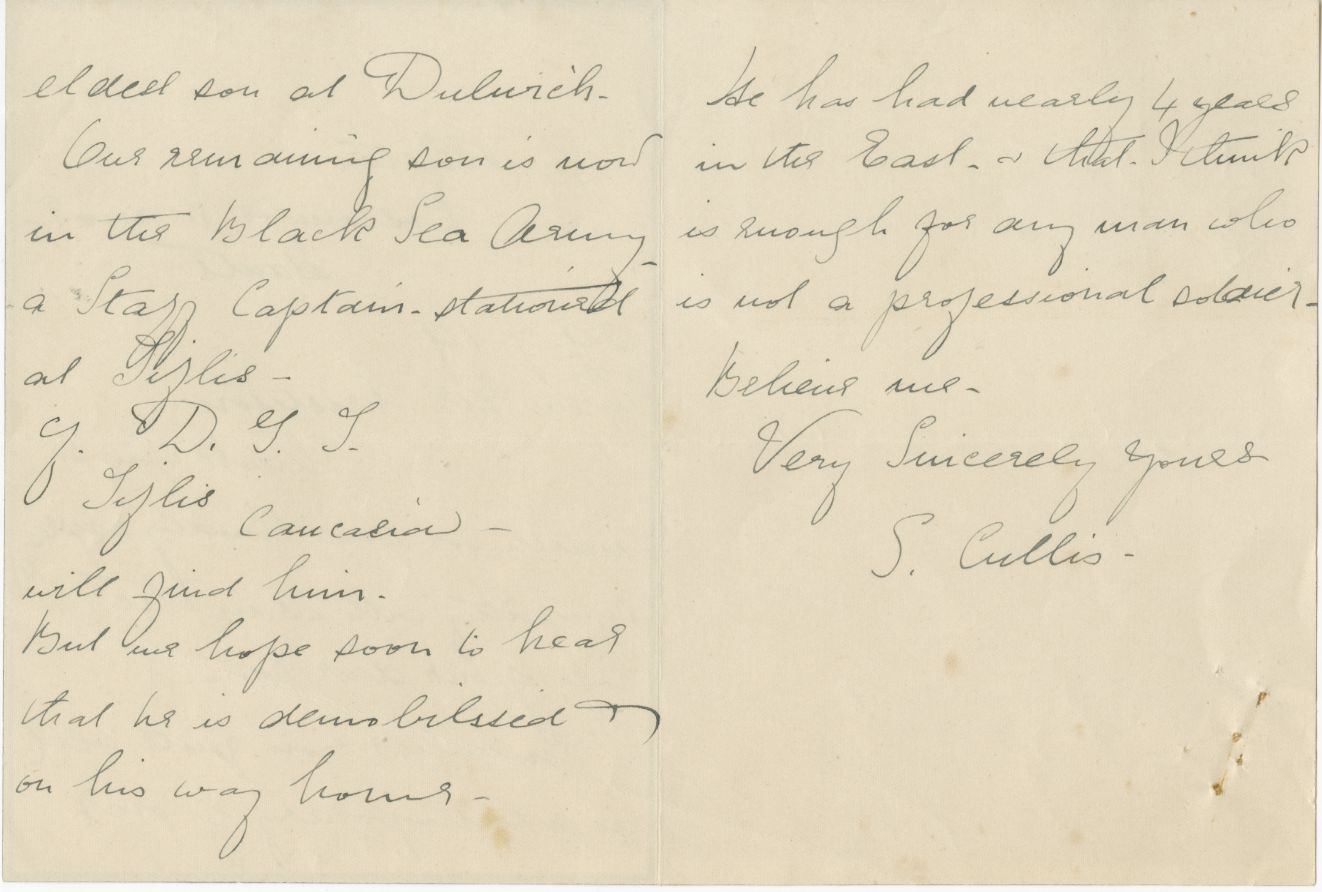 eldest son at Dulwich.
Our remaining son is now
in the Black Sea Army -
a Staff Captain - stationed
at Tiflis -
D. G. T.
Tiflis
Caucasia -
will find him.
But we hope soon to hear
that he is demobilised &
on his way home -
He has had nearly 4 years
in the East - & that - I think
is enough for any man who
is not a professional soldier -
Believe me -
Very Sincerely yours
S. Cullis -